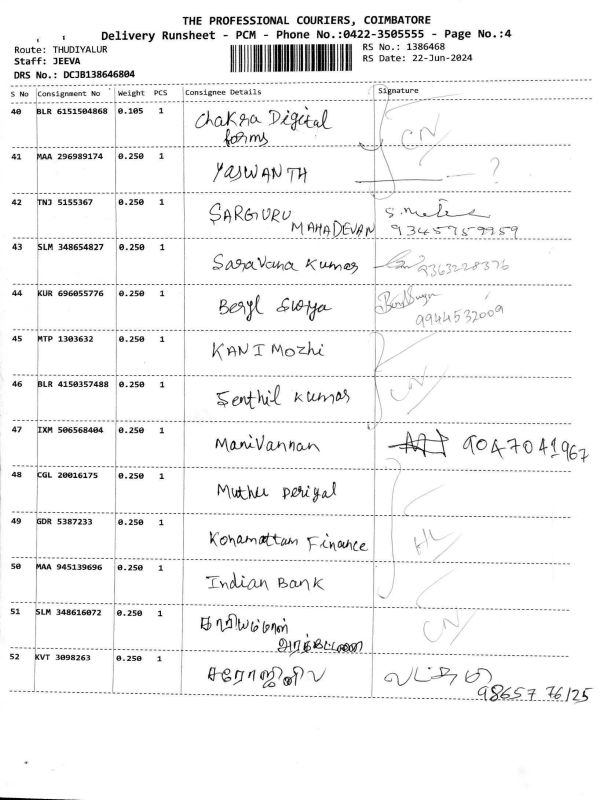 THE PROFESSIONAL COURIERS, COIMBATORE
Delivery Runsheet - PCM - Phone No.:0422-3505555 - Page No.:4
Route: THUDIYALUR
RS No.: 1386468
Staff: JEEVA
RS Date: 22-Jun-2024
DRS No.: DCJB138646804
S No Consignment No Weight PCS Consignee Details Signature
40 BLR 6151504868 0.105 1 Chakra Digital
forms
CN
41 MAA 296989174 0.250 1 YASWANTH ?
42 TNJ 5155367 0.250 1 SARGURU
MAHADEVAN
9345759959
43 SLM 348654827 0.250 1 Saravana Kumar 9363228376
44 KUR 696055776 0.250 1 Beryl Surya
9944532009
45 MTP 1303632 0.250 1 KANIMozhi
46 BLR 4150357488 0.250 1 Senthil Kumar CN
47 IXM 506568404 0.250 1 Manivannan 9047041967
48 CGL 20016175 0.250 1 Muthu Periyal
49 GDR 5387233 0.250 1 Konamattam Finance
50 MAA 945139696 0.250 1 Indian Bank
51 SLM 348616072 0.250 1 CN
52 KVT 3098263 0.250 1
98657 76125